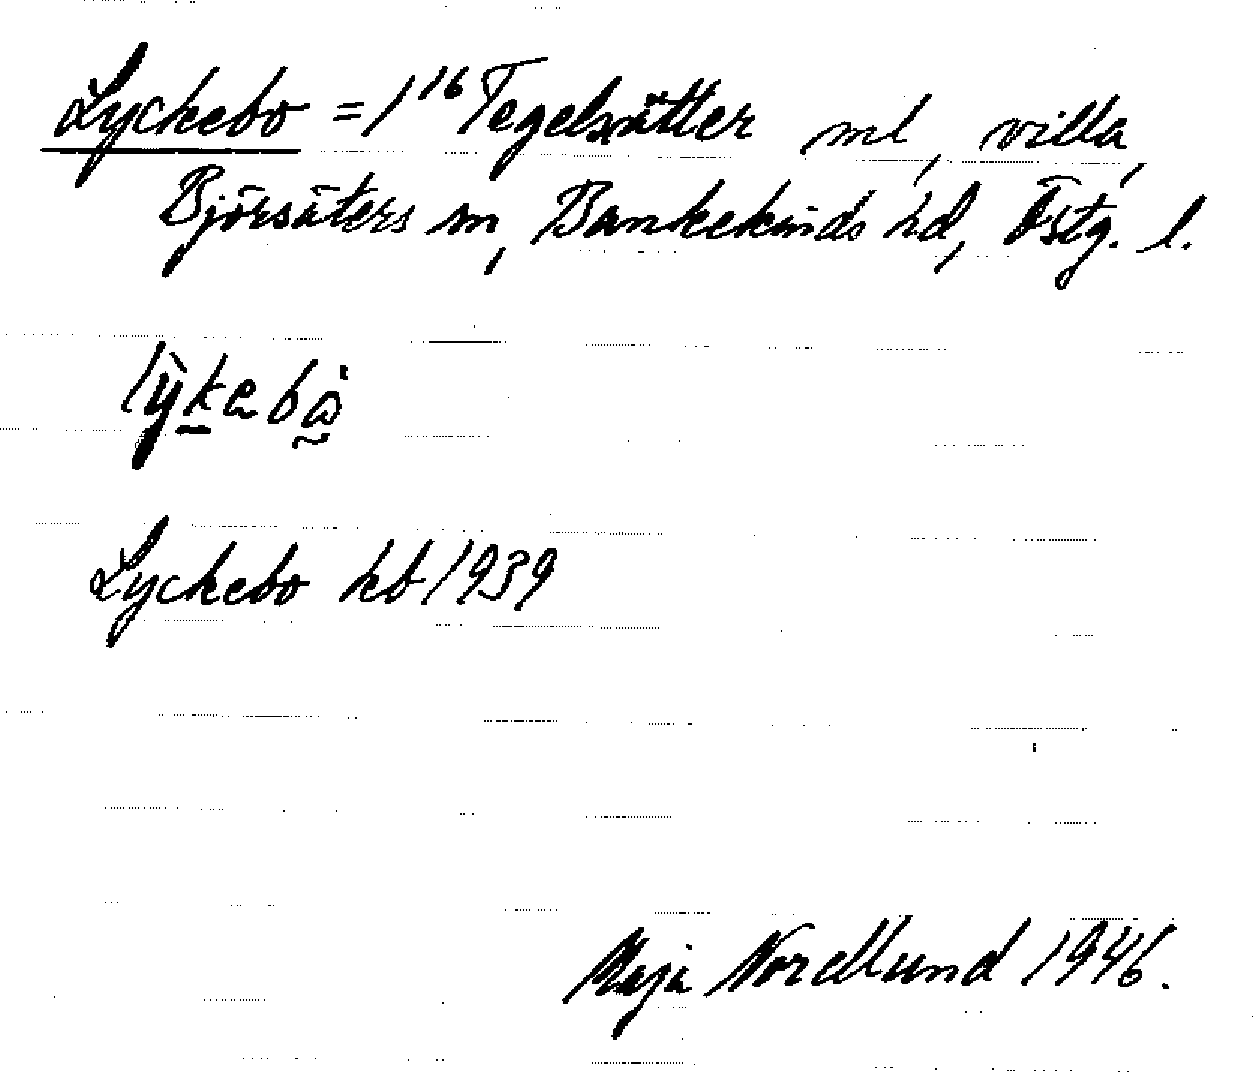 Lyckebo = 1¹⁶ Tegelsätter ml, villa,
Björsäters sn, Bankekinds hd, Östg. l.
lỳkabo
Lyckebo kb 1939
Maja Nordlund 1946.